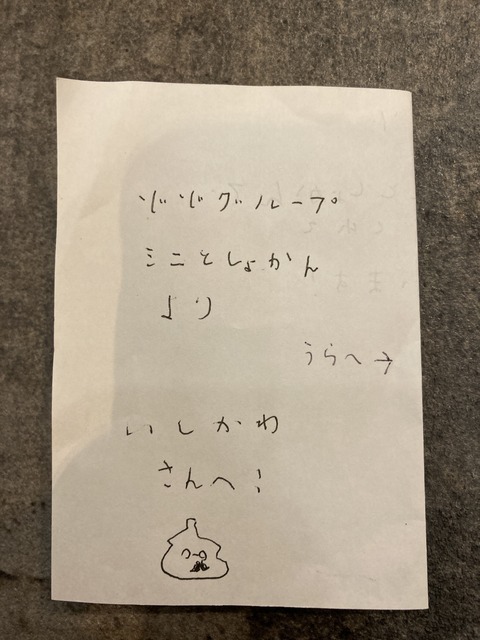 ゾゾグループ
ミニとしょかん
より
うらへ→
いしかわ
さんへ!